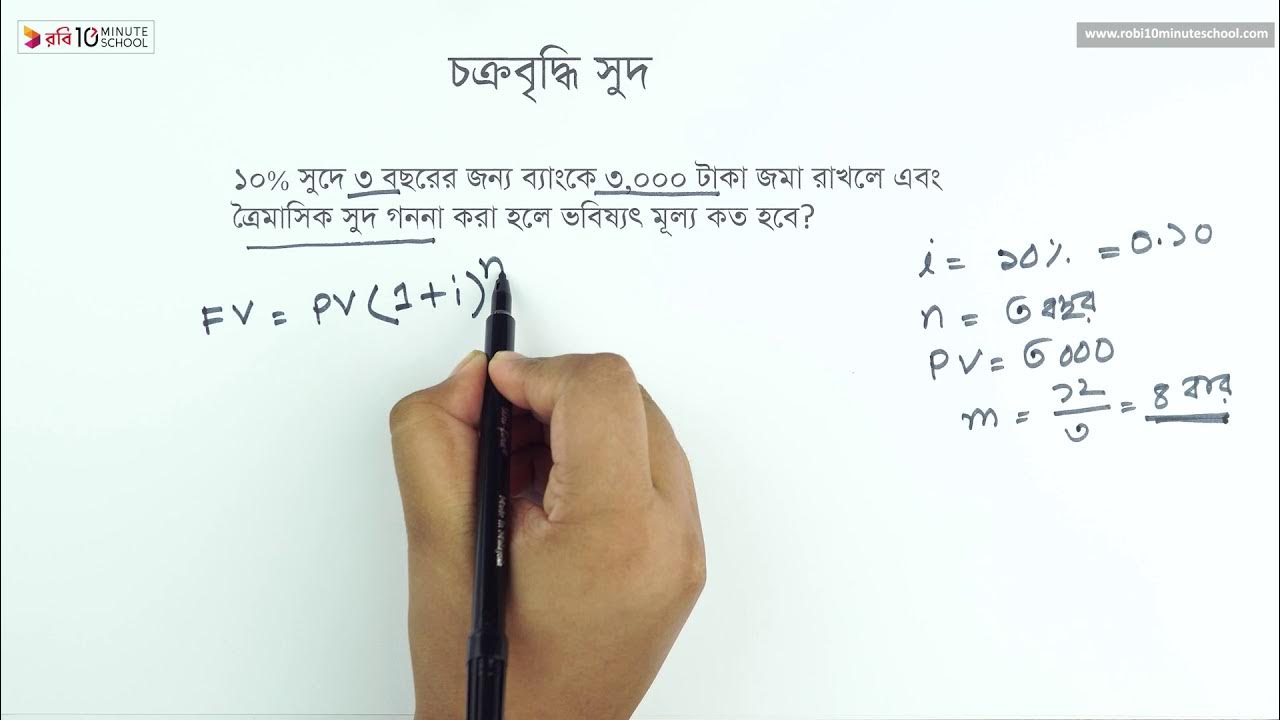 রবি 10 MINUTE SCHOOL
www.robi10minuteschool.com
চক্রবৃদ্ধি সুদ
১০% সুদে ৩ বছরের জন্য ব্যাংকে ৩,০০০ টাকা জমা রাখলে এবং
ত্রৈমাসিক সুদ গননা করা হলে ভবিষ্যৎ মূল্য কত হবে?
FV = PV (1+i)^n
i = ১0%. = 0.১0
n = ৩ বছর
PV = ৩000
m = ১২/৩ = ৪ বার